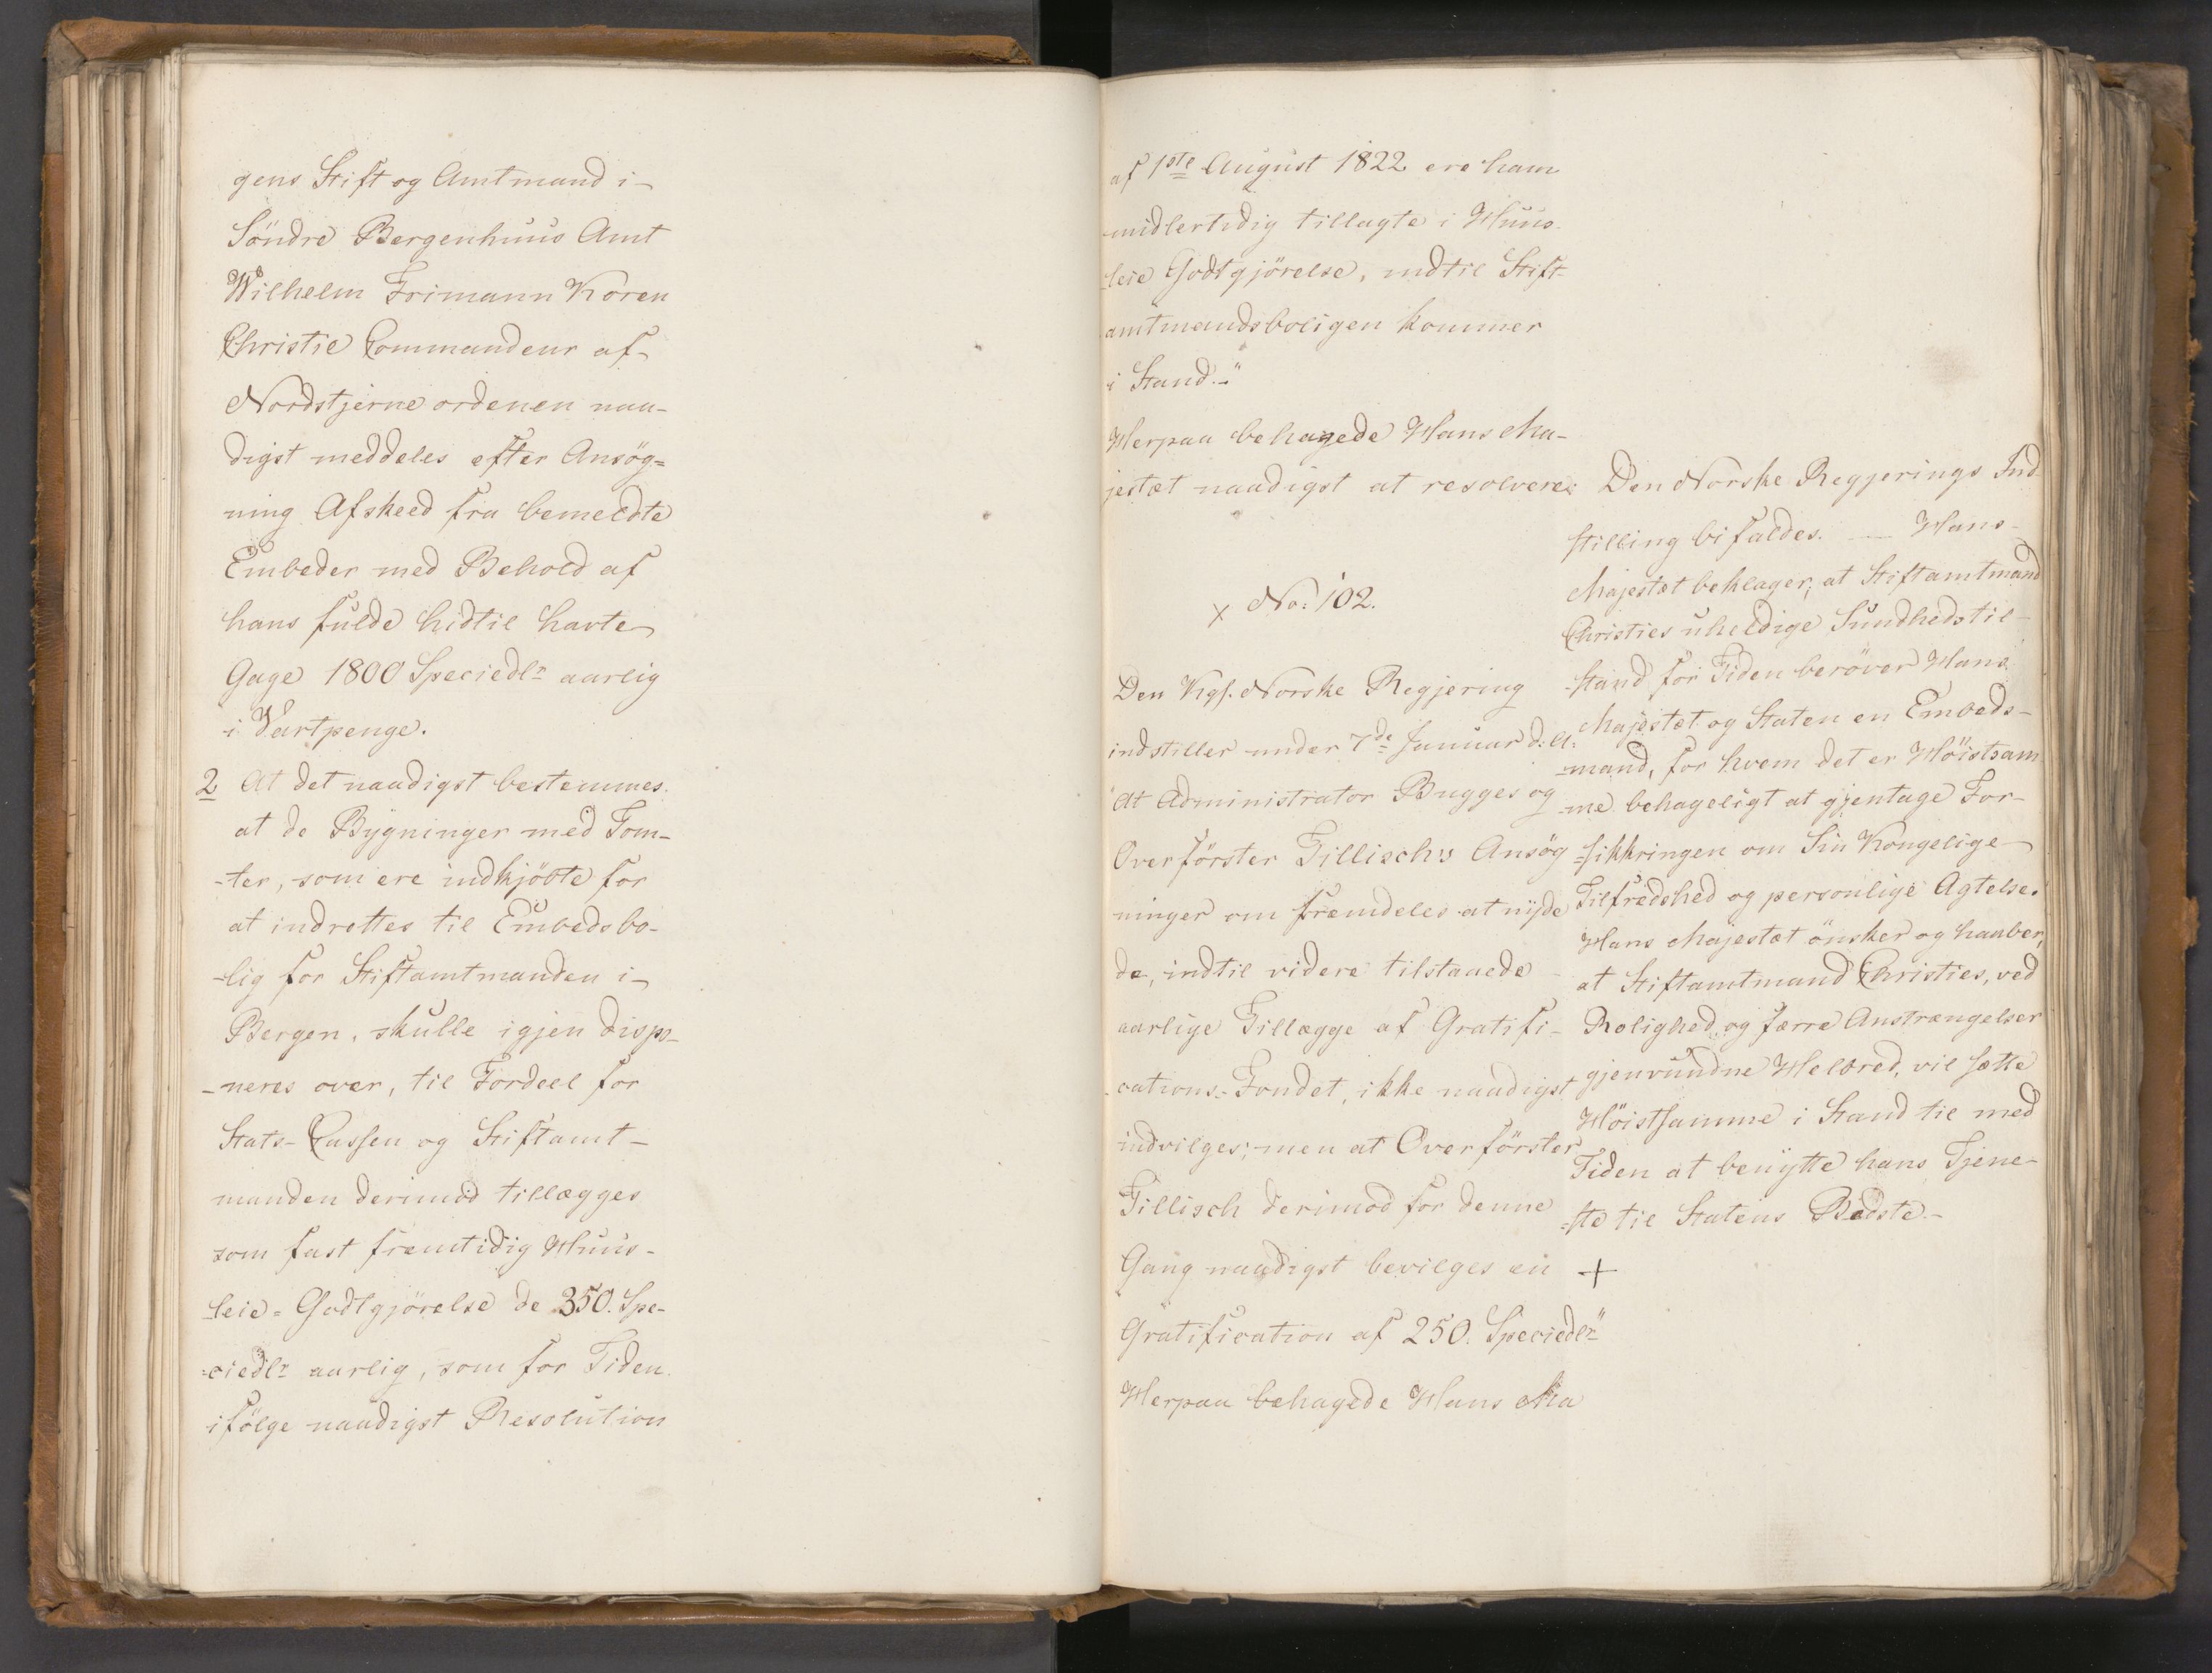 gens Stift og Amtmand i
Söndre Bergenhuus Amt
Wilhelm Frimann Koren
Christie Commandeur af
Nordstjerne ordenen naa-
digst meddeles efter Ansög=
ning Afskeed fra bemeldte
Embeder med Behold af
hans fulde hidtil havte
Gage 1800 Speciedlr aarlig
i Vartpenge.
2 At det naadigst bestemmes
at de Bygninger med Tom-
-ter, som ere indkjöbte for
at indrettes til Embedsbo-
-lig for Stiftamtmanden i
Bergen, skulle igjen dispo-
-neres over, til Fordeel for
Stats-Cassen og Stiftamt-
manden derimod tillægges
som fast fremtidig Huus-
leie=Godtgjörelse de 350. Spe-
=ciedlr aarlig, som for Tiden
ifölge naadigst Resolution
af 1ste August 1822 ere ham
midlertidig tillagte i Huus-
leie Godtgjörelse, indtil Stift-
amtmandsboligen kommer
i Stand."
Herpaa behagede Hans Ma-
jestæt naadigst at resolvere:
Den Norske Regjerings Ind-
stilling bifaldes. — Hans
Majestæt beklager, at Stiftamtmand
Christies uheldige Sundhedstil-
-stand for Tiden beröver Hans
Majestæt og Staten en Embeds-
-mand, for hvem det er Höistsam-
-me behageligt at gjentage For-
-sikkringen om Sin Kongelige
Tilfredshed og personlige Agtelse.
Hans Majestæt önsker og haaber,
at Stiftamtmand Christies, ved
Rolighed og færre Anstrængelser
gjenvundne Helbred, vil sætte
Höistsamme i Stand til med
Tiden at benytte hans Tjene-
-ste til Statens Bedste-
+
x No: 102.
Den Kgl. Norske Regjering
indstiller under 7de Januar d: A:
"At Administrator Bugges og
Overförster Tillisch's Ansög
ninger om fremdeles at nyde
de, indtil videre tilstaaede
aarlige Tillægge af Gratifi-
-cations-Fondet, ikke naadigst
indvilges; men at Overförster
Tillisch derimod for denne
Gang naadigst bevilges en
Gratification af 250. Speciedlr"
Herpaa behagede Hans Ma